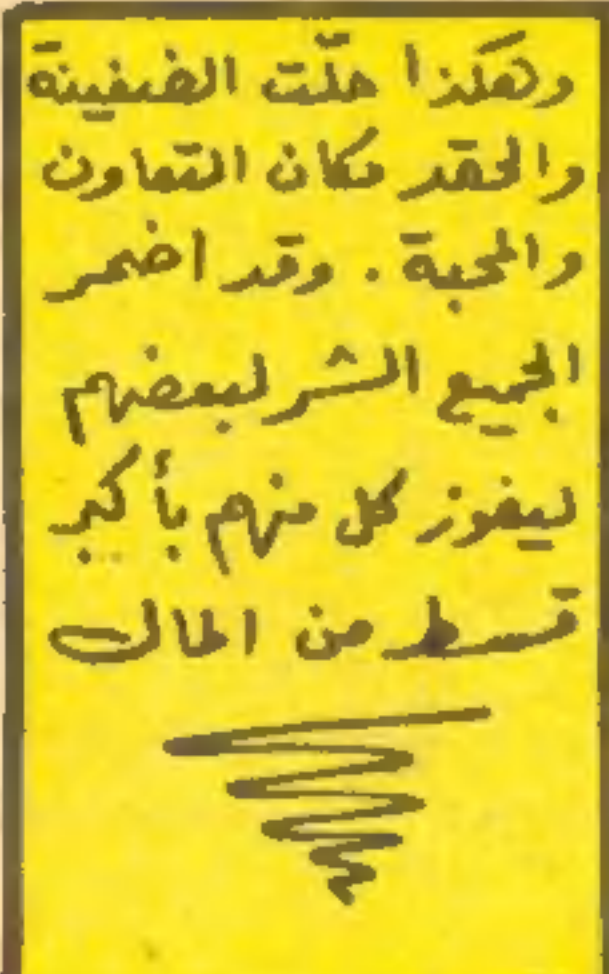 وهكذا حلّت الضغينة
والحقد مكان التعاون
والمحبة . وقد اضمر
الجميع الشر لبعضهم
ليفوز كل منهم بأكبر
قسط من المال